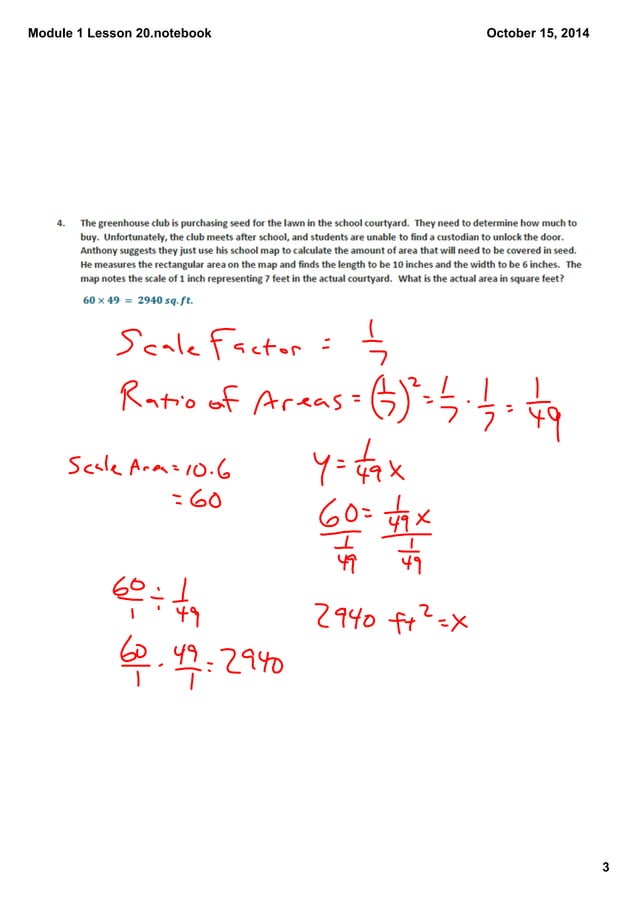 Module 1 Lesson 20.notebook
October 15, 2014
4. The greenhouse club is purchasing seed for the lawn in the school courtyard. They need to determine how much to
buy. Unfortunately, the club meets after school, and students are unable to find a custodian to unlock the door.
Anthony suggests they just use his school map to calculate the amount of area that will need to be covered in seed.
He measures the rectangular area on the map and finds the length to be 10 inches and the width to be 6 inches. The
map notes the scale of 1 inch representing 7 feet in the actual courtyard. What is the actual area in square feet?
60 × 49 = 2940 sq. ft.
Scale Factor = 1/7
Ratio of Areas = (1/7)² = 1/7 · 1/7 = 1/49
Scale Area = 10·6
= 60
y = 1/49 x
60 = 1/49 x
1/49 1/49
60/1 ÷ 1/49
2940 ft² = x
60/1 · 49/1 = 2940
3